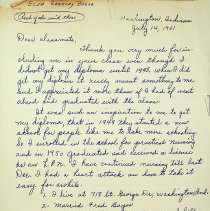 Elva Sanders Bogue
Washington, Indiana
July 14, 1981
Dear classmate,
Thank you very much for in-
cluding me in your class even though I
didn't get my diploma until 1948, when I did
get my diploma it really meant something to me
and I appreciated it more than if I had of went
ahead and graduated with the class.
It was such an inspiration to me to get
my diploma, that in 1949 they started a new
school for people like me to take nurse schooling.
So I enrolled in the school for practical nursing
and in 1950 graduated and became a licensed
L.P.N. I have continued nursing till last
Dec. I had a heart attack so have to take it
easy for awhile.
1. I live at 715 St. George Dr. Washington, Ind.
2. married Fred Bogue